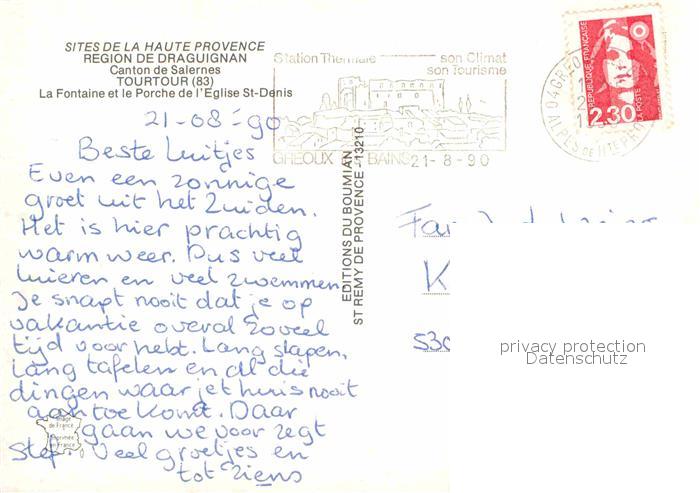 SITES DE LA HAUTE PROVENCE
REGION DE DRAGUIGNAN
Canton de Salernes
TOURTOUR (83)
La Fontaine et le Porche de l'Eglise St-Denis
Station Thermale son Climat
son Tourisme
GREOUX BAINS 21-8-90
04 GREO
ALPES DE HTE PRO
REPUBLIQUE FRANÇAISE
2,30
LA POSTE
21-08-'90
Beste Luitjes
Even een zonnige
groet uit het Zuiden.
Het is hier prachtig
warm weer. Dus veel
luieren en veel zwemmen
Je snapt nooit dat je op
vakantie overal zoveel
tijd voor hebt. Lang slapen,
Lang tafelen en al die
dingen waar je thuis nooit
aan toe komt. Daar
gaan we voor zegt
Stef. Veel groetjes en
tot ziens
Image
de France
Imprimée
en France
EDITIONS DU BOUMIAN
ST REMY DE PROVENCE - 13210
Fa
K
privacy protection
Datenschutz